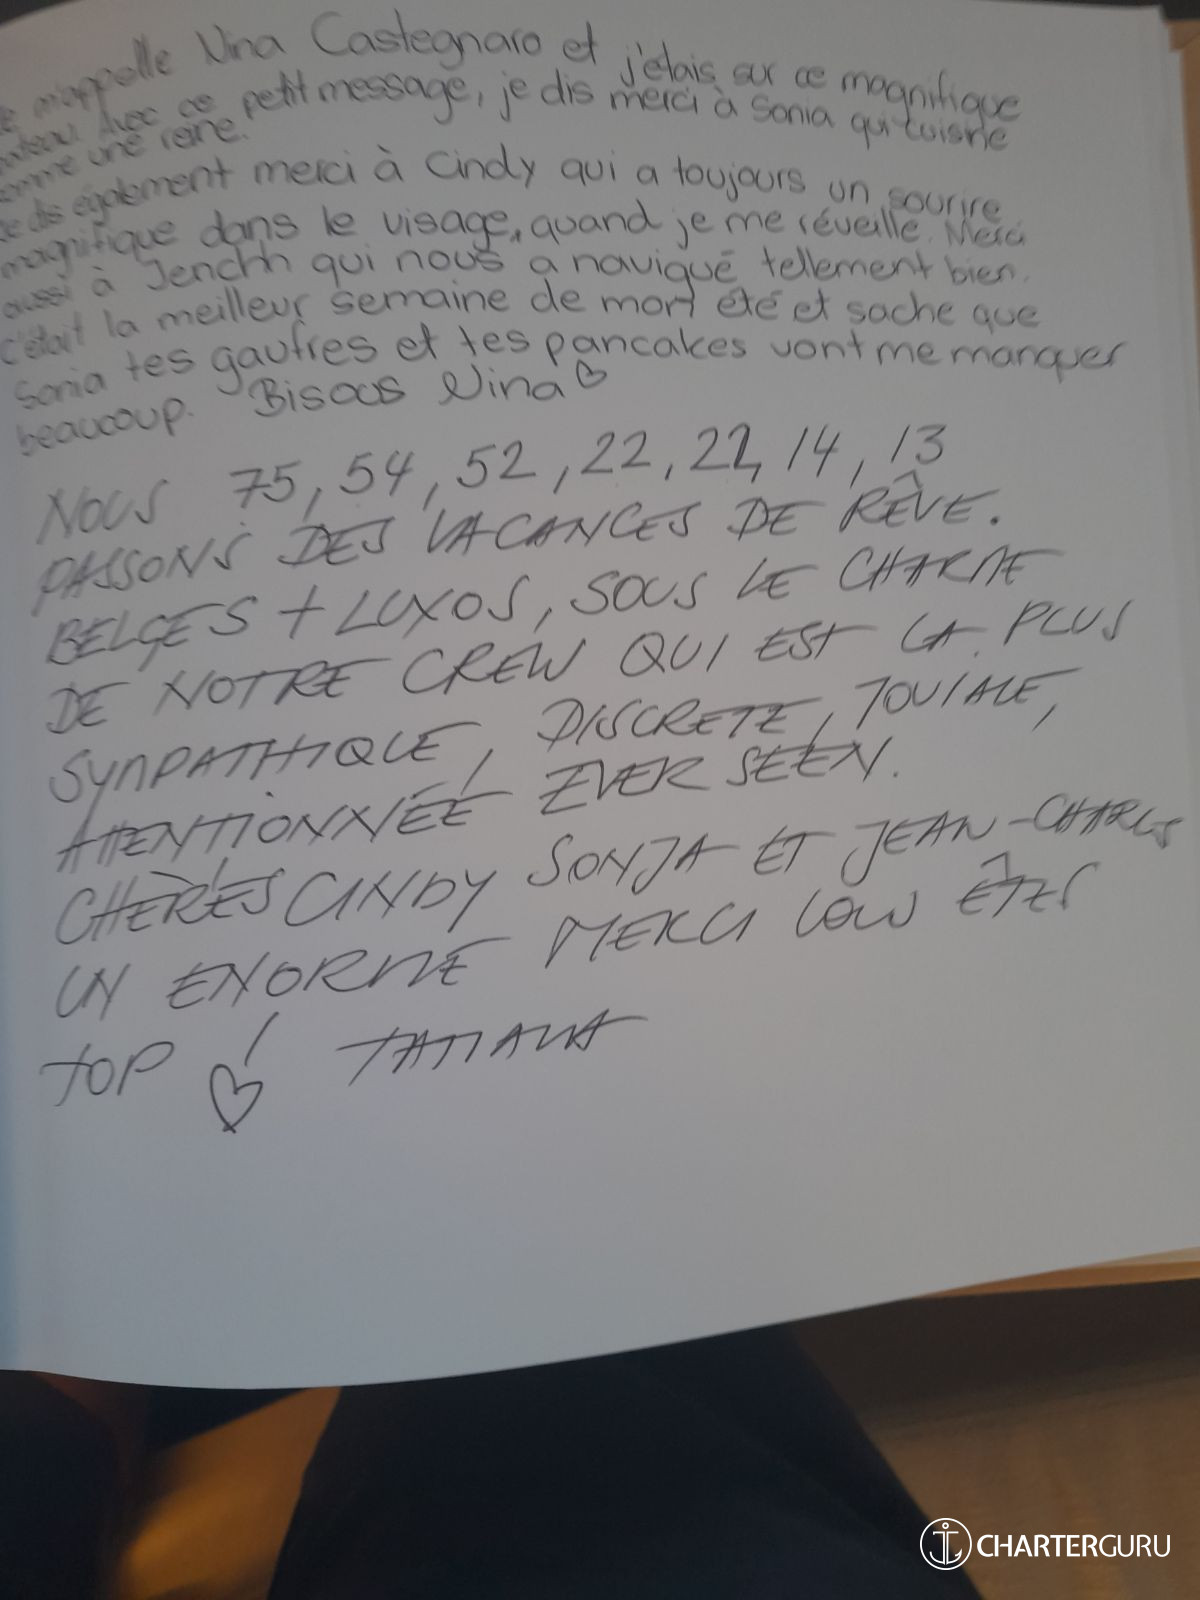 m'appelle Nina Castegnaro et j'étais sur ce magnifique
Avec ce petit message, je dis merci à Sonia qui cuisine
comme une reine.
Je dis également merci à Cindy qui a toujours un sourire
magnifique dans le visage, quand je me réveille. Merci
aussi à qui nous a navigué tellement bien.
C'était la meilleur semaine de mon été et sache que
Sonia tes gaufres et tes pancakes vont me manquer
beaucoup. Bisous Nina ♡
NOUS 75, 54, 52, 22, 22, 14, 13
PASSONS DES VACANCES DE RÊVE.
BELGES + LUXOS, SOUS LE CHARME
DE NOTRE CREW QUI EST LA PLUS
SYMPATHIQUE, DISCRETE, JOVIALE,
ATTENTIONNÉE EVER SEEN.
CHÈRES CINDY SONJA ET JEAN-CHARLES
UN ENORME MERCI ÊTES
TOP ! ♡ TATIANA
CHARTERGURU